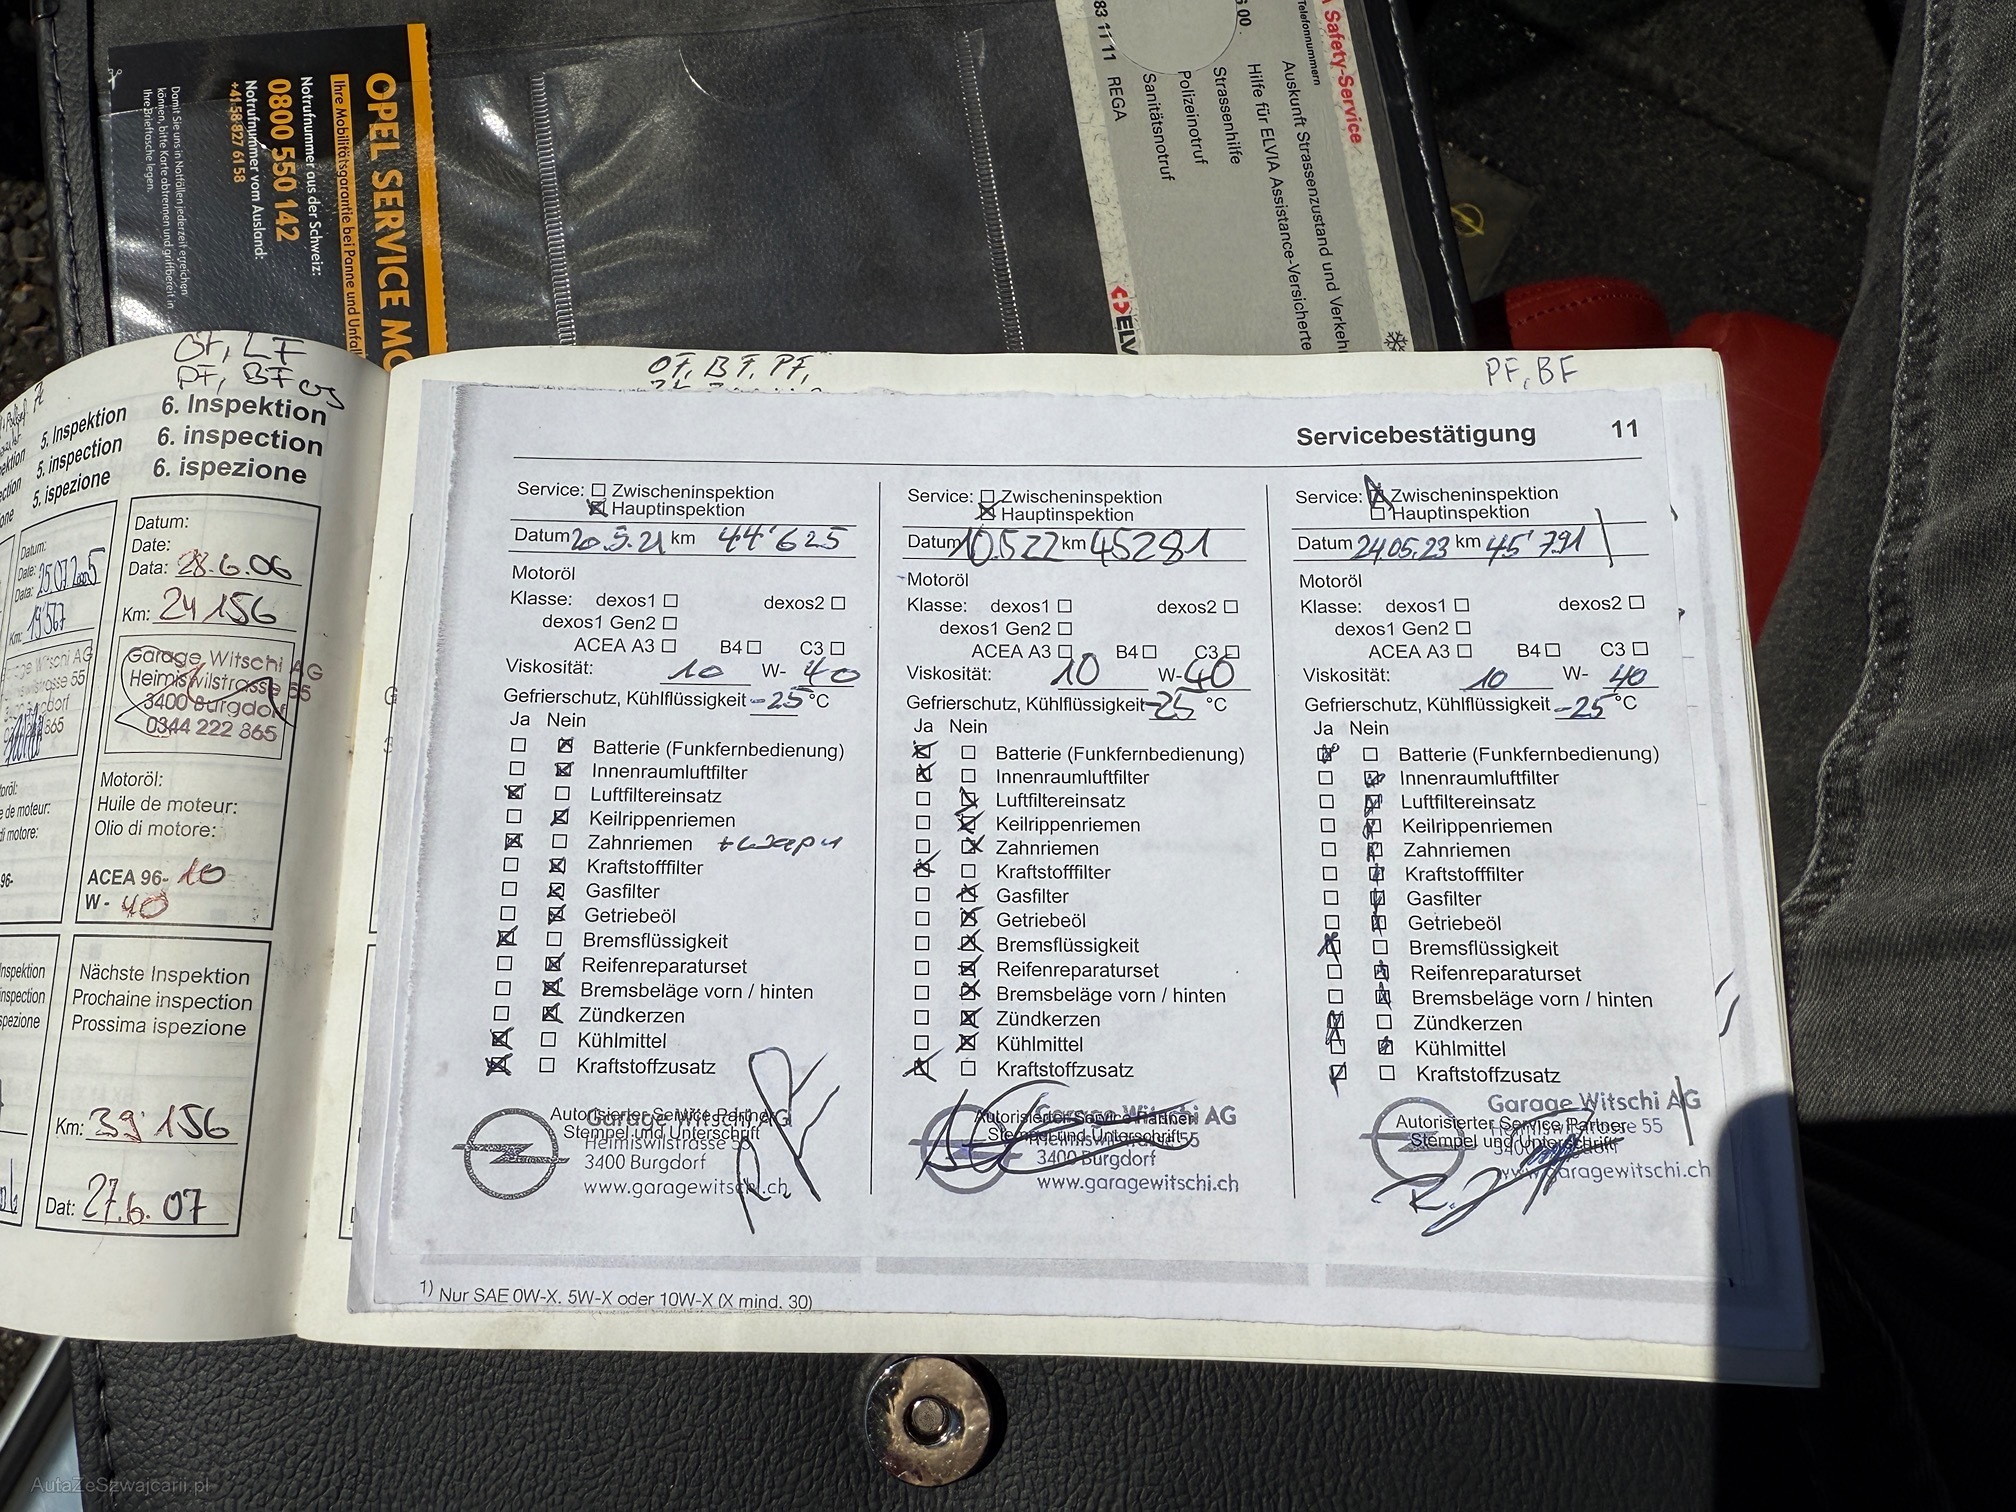 OPEL SERVICE MO
Ihre Mobilitätsgarantie bei Panne und Unfall
Notrufnummer aus der Schweiz:
0800 550 142
Notrufnummer vom Ausland:
+41 58 827 61 58
Damit Sie uns in Notfällen jederzeit erreichen
können, bitte Karte abtrennen und griffbereit in
Ihre Brieftasche legen.
A Safety-Service
Telefonnummern
Auskunft Strassenzustand und Verkehr
Hilfe für ELVIA Assistance-Versicherte
Strassenhilfe
Polizeinotruf
Sanitätsnotruf
REGA
83 11 11
ELV
5. Inspektion
5. inspection
5. ispezione
Datum:
Date:
Data: 25.07.2005
Km: 19'567
OF, LF
PF, BF
6. Inspektion
6. inspection
6. ispezione
Datum:
Date:
Data: 28.6.06
Km: 24 156
Garage Witschi AG
Heimiswilstrasse 55
3400 Burgdorf
0344 222 865
Motoröl:
Huile de moteur:
Olio di motore:
ACEA 96- 10
W - 40
Nächste Inspektion
Prochaine inspection
Prossima ispezione
Km: 39'156
Dat: 27.6.07
OF, BF, PF,
PF, BF
Servicebestätigung 11
Service: Zwischeninspektion
Hauptinspektion
Datum 20.5.21 km 44'625
Motoröl
Klasse: dexos1 dexos2
dexos1 Gen2
ACEA A3 B4 C3
Viskosität: 10 W- 40
Gefrierschutz, Kühlflüssigkeit -25 °C
Ja Nein
Batterie (Funkfernbedienung)
Innenraumluftfilter
Luftfiltereinsatz
Keilrippenriemen
Zahnriemen + Wapu
Kraftstofffilter
Gasfilter
Getriebeöl
Bremsflüssigkeit
Reifenreparaturset
Bremsbeläge vorn / hinten
Zündkerzen
Kühlmittel
Kraftstoffzusatz
Autorisierter Service Partner
Stempel und Unterschrift
Garage Witschi AG
Heimiswilstrasse 55
3400 Burgdorf
www.garagewitschi.ch
Service: Zwischeninspektion
Hauptinspektion
Datum 10.5.22 km 45281
Motoröl
Klasse: dexos1 dexos2
dexos1 Gen2
ACEA A3 B4 C3
Viskosität: 10 W- 40
Gefrierschutz, Kühlflüssigkeit -25 °C
Ja Nein
Batterie (Funkfernbedienung)
Innenraumluftfilter
Luftfiltereinsatz
Keilrippenriemen
Zahnriemen
Kraftstofffilter
Gasfilter
Getriebeöl
Bremsflüssigkeit
Reifenreparaturset
Bremsbeläge vorn / hinten
Zündkerzen
Kühlmittel
Kraftstoffzusatz
Autorisierter Service Partner
Stempel und Unterschrift
Garage Witschi AG
Heimiswilstrasse 55
3400 Burgdorf
www.garagewitschi.ch
Service: Zwischeninspektion
Hauptinspektion
Datum 24.05.23 km 45'791
Motoröl
Klasse: dexos1 dexos2
dexos1 Gen2
ACEA A3 B4 C3
Viskosität: 10 W- 40
Gefrierschutz, Kühlflüssigkeit -25 °C
Ja Nein
Batterie (Funkfernbedienung)
Innenraumluftfilter
Luftfiltereinsatz
Keilrippenriemen
Zahnriemen
Kraftstofffilter
Gasfilter
Getriebeöl
Bremsflüssigkeit
Reifenreparaturset
Bremsbeläge vorn / hinten
Zündkerzen
Kühlmittel
Kraftstoffzusatz
Autorisierter Service Partner
Stempel und Unterschrift
Garage Witschi AG
Heimiswilstrasse 55
3400 Burgdorf
www.garagewitschi.ch
1) Nur SAE 0W-X. 5W-X oder 10W-X (X mind. 30)
AutaZeSzwajcarii.pl